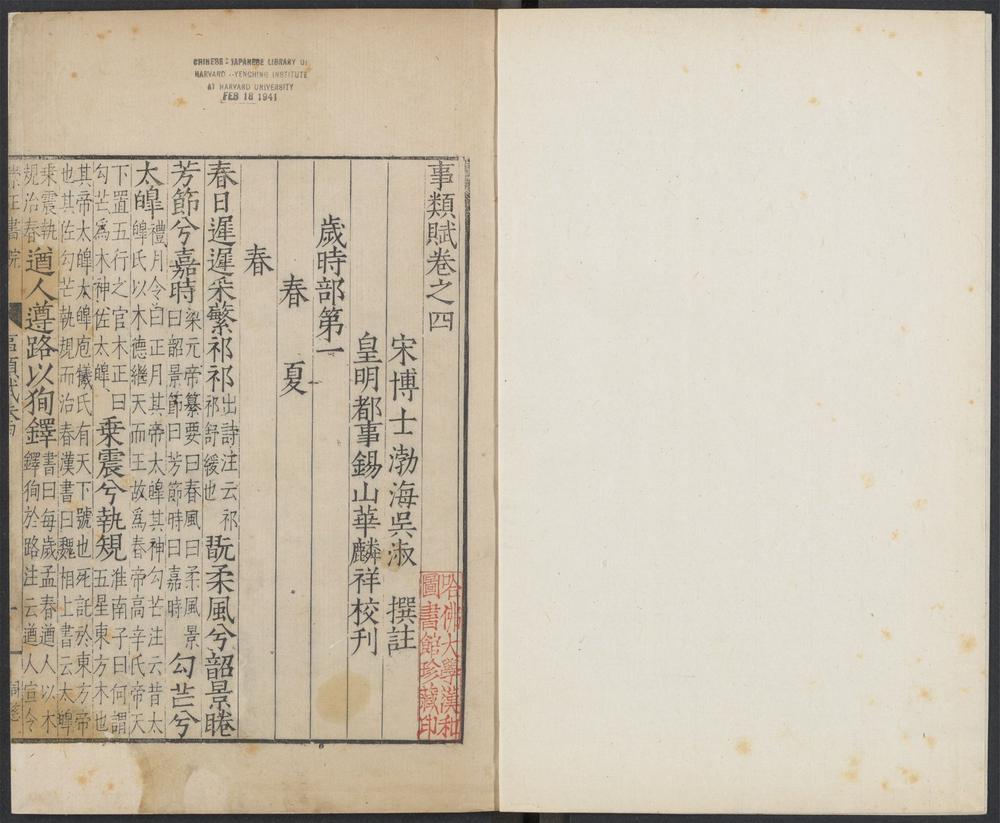 CHINESE-JAPANESE LIBRARY OF
HARVARD-YENCHING INSTITUTE
AT HARVARD UNIVERSITY
FEB 18 1941
事類賦卷之四
哈佛大學漢和
圖書館珍藏印
宋博士渤海吳淑 撰註
皇明都事錫山華麟祥校刊
歲時部第一
春 夏
春
春日遲遲采蘩祁祁出詩注云祁祁舒緩也翫柔風兮韶景睠
芳節兮嘉時梁元帝纂要曰春風曰柔風景曰韶景節曰芳節時曰嘉時勾芒兮
太皥禮月令曰正月其帝太皥其神勾芒注云昔太皥氏以木德繼天而王故爲春帝高辛氏帝天
下置五行之官木正曰勾芒爲木神佐太皥乗震兮執規淮南子曰何謂五星東方木也
其帝太皥太皥庖犧氏有天下號也死託於東方帝也其佐勾芒執規而治春漢書曰魏相上書云太皥
乗震執規治春遒人遵路以狥鐸書曰每歲孟春遒人以木鐸狥於路注云遒人宣令
崇正書院